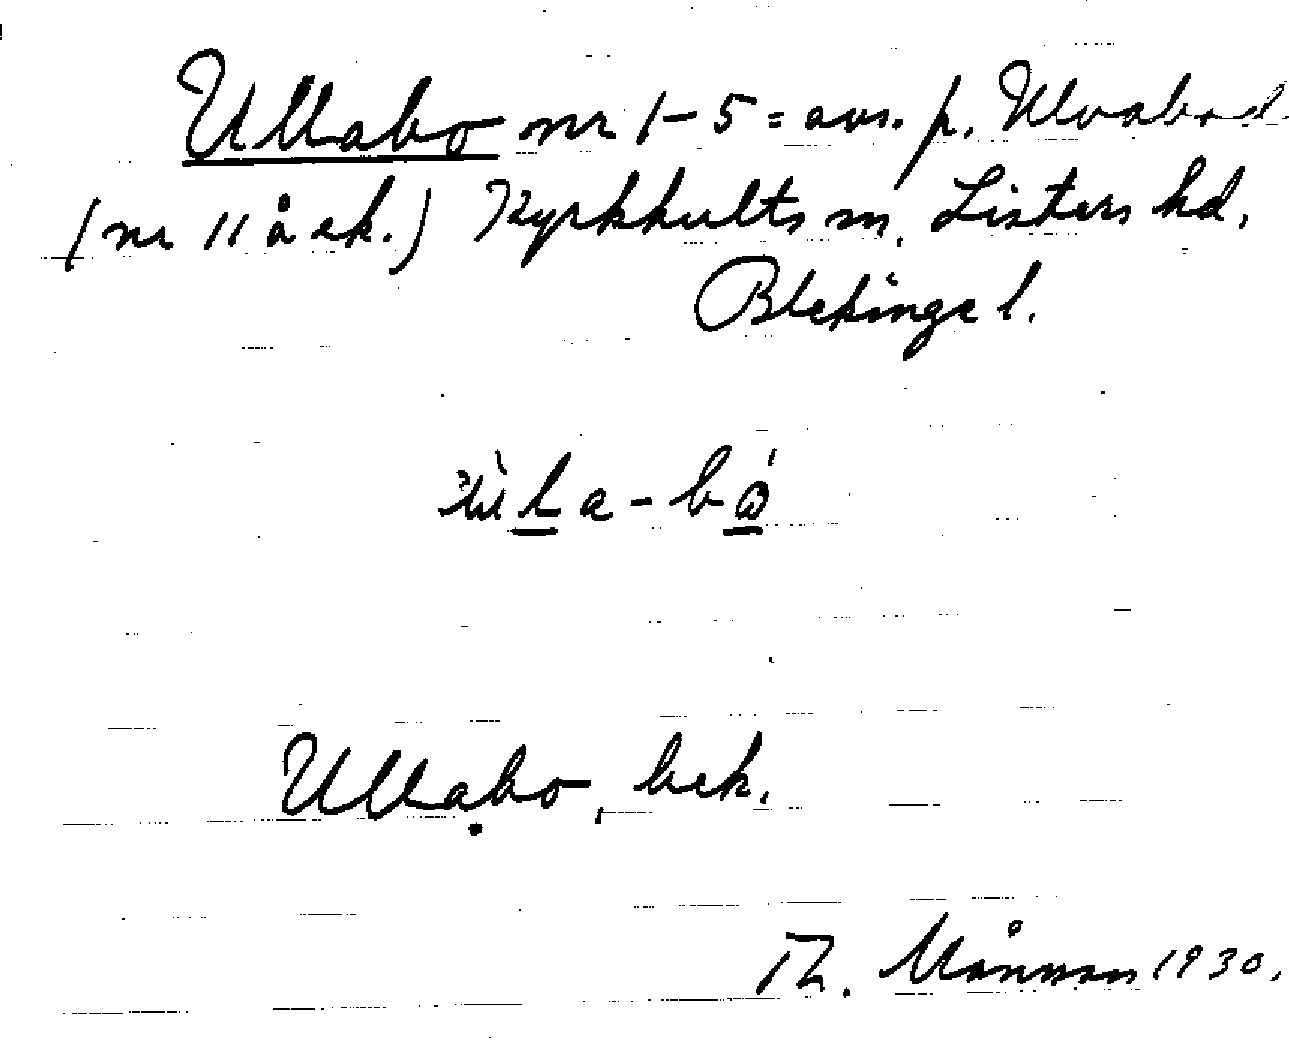 Ullabo nr 1-5 = avs. p. Ulvabod
(nr 11 å ek.) Kyrkhults sn, Listers hd,
Blekinge l.
a - b
Ullabo, bek.
Th. Månsson 1930.